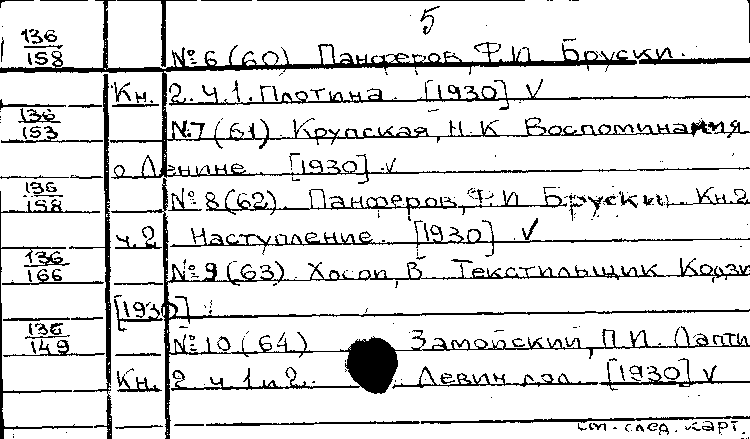 5
136/158 №6 (60) Панферов, Ф.И Бруски.
Кн. 2. Ч.1. Плотина. [1930] V
136/153 №7 (61). Крупская, Н.К Воспоминания
о Ленине. [1930] V
136/158 №8 (62). Панферов, Ф.И Бруски. Кн.2
ч.2 Наступление. [1930] V
136/166 №9 (63). Хосои, В. Текстильщик Кодзи
[1930]
136/149 №10 (64) Замойский, П.И. Лапти
Кн. 2 ч.1 и 2. Левин дол. [1930] V
см. след. карт.